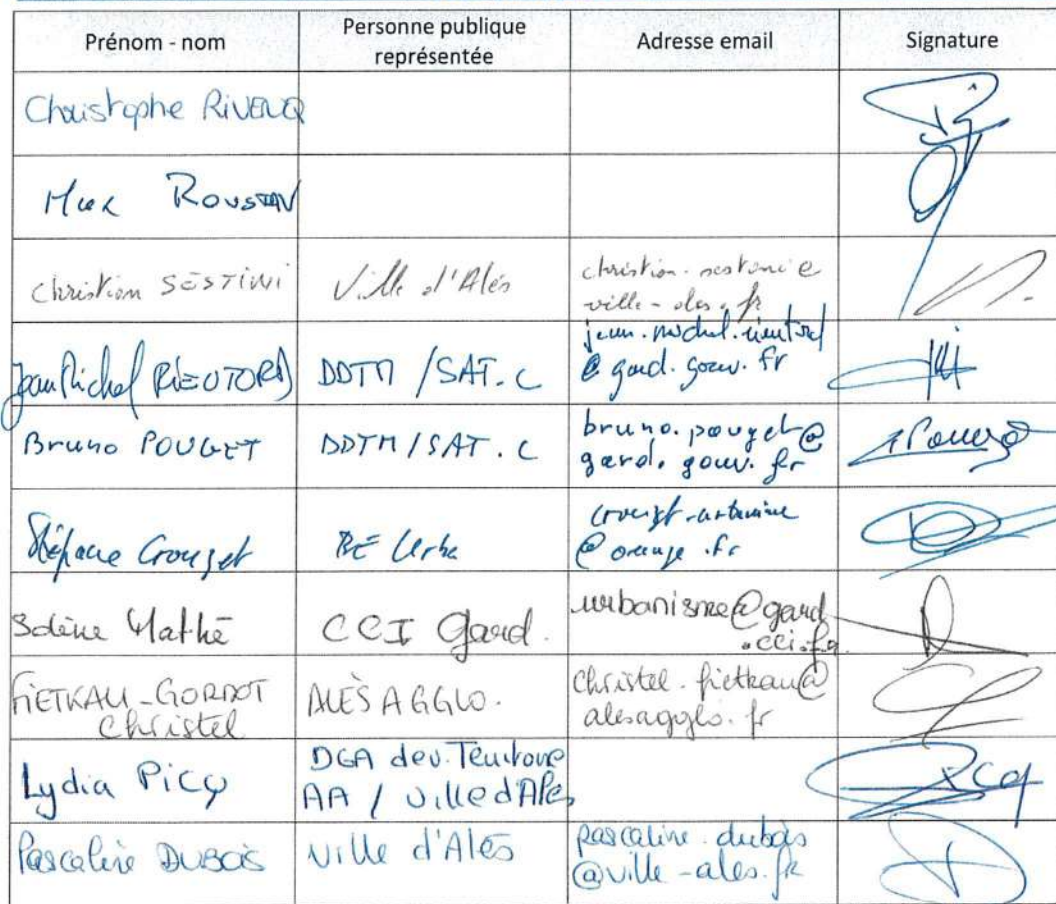 Prénom - nom
Personne publique
représentée
Adresse email
Signature
Christophe RIVENCQ
Max ROUSTAN
Christian SESTINI
Ville d'Alès
christian.sestini@
ville-ales.fr
Jean Michel RIEUTORD
DDTM /SAT.C
jean.michel.rieutord
@gard.gouv.fr
Bruno POUGET
DDTM/SAT.C
bruno.pouget@
gard.gouv.fr
Stéphane Crouzet
BE Urba
@orange.fr
Solène Mathé
CCI Gard.
urbanisme@gard
.cci.fr
FIETKAU-GORDOT
Christel
ALÈS AGGLO.
christel.fietkau@
alesagglo.fr
Lydia PICQ
DGA dev. Territoire
AA / Ville d'Alès
Pascaline DUBOIS
Ville d'Alès
pascaline.dubois
@ville-ales.fr